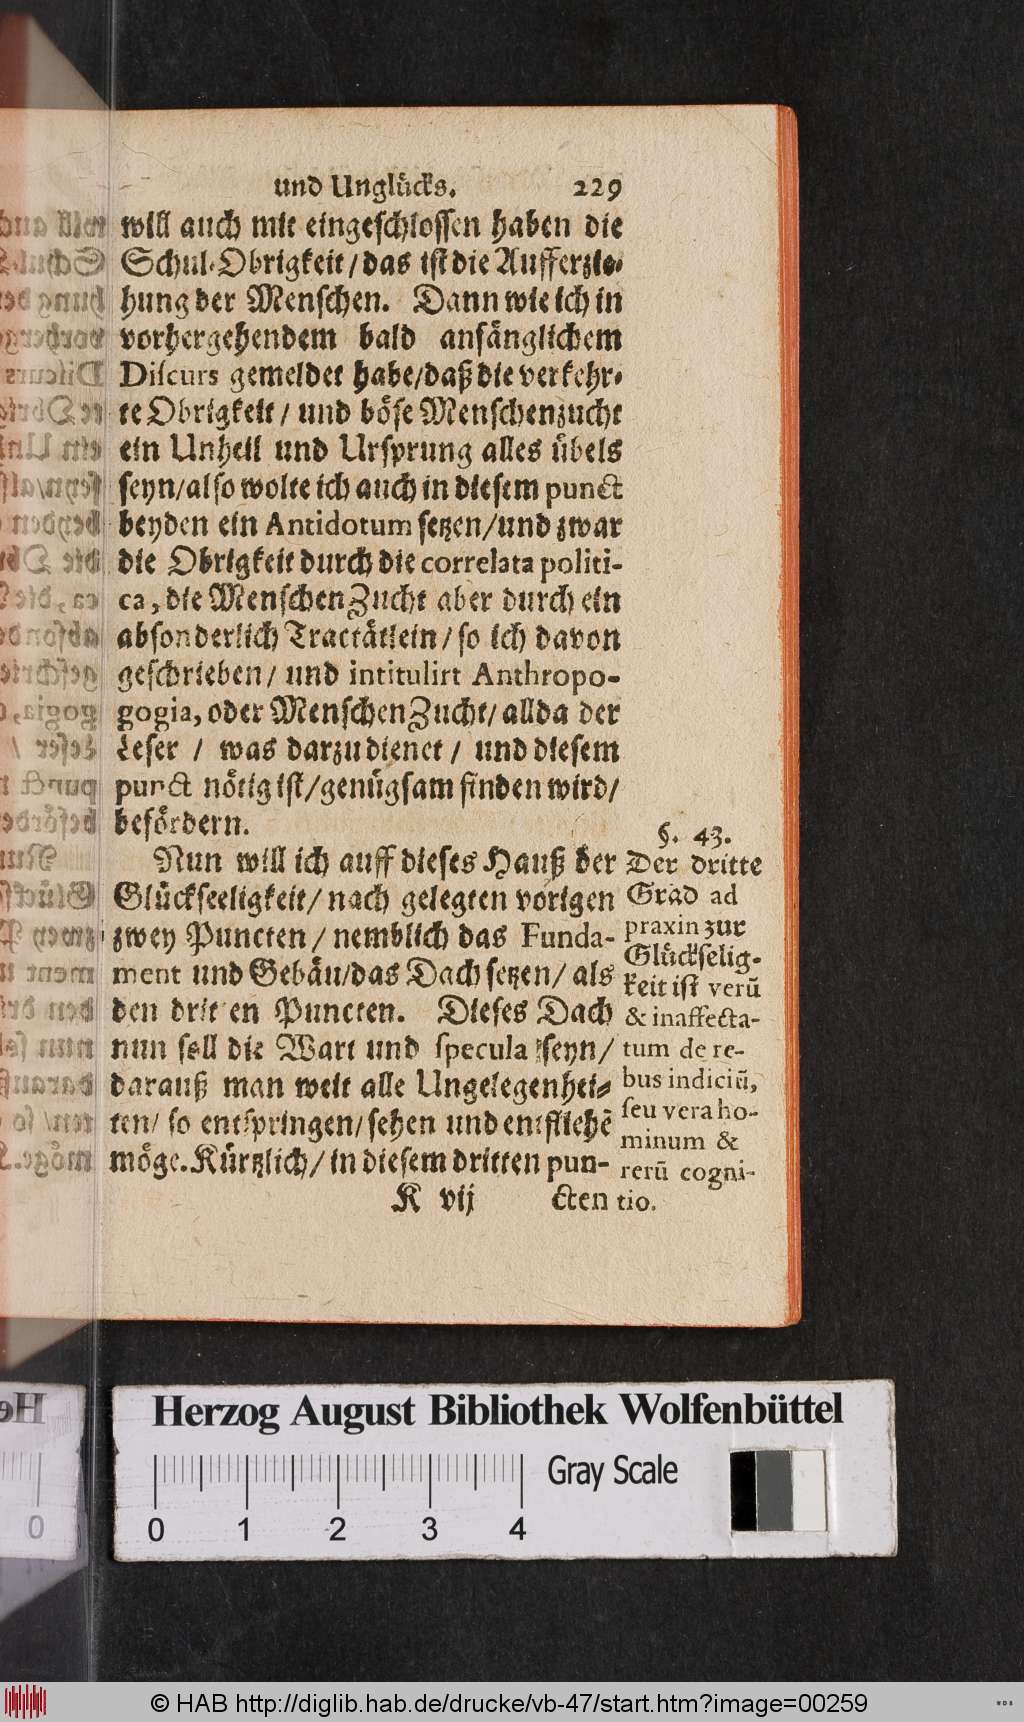 und Unglücks. 229
will auch mit eingeschlossen haben die
Schul-Obrigkeit/das ist die Aufferzie-
hung der Menschen. Dann wie ich in
vorhergehendem bald anfänglichem
Discurs gemeldet habe/daß die verkehr-
te Obrigkeit/ und böse Menschenzucht
ein Unheil und Ursprung alles übels
seyn/also wolte ich auch in diesem punct
beyden ein Antidotum setzen/und zwar
die Obrigkeit durch die correlata politi-
ca, die Menschen Zucht aber durch ein
absonderlich Tractätlein/so ich davon
geschrieben/ und intitulirt Anthropo-
gogia, oder Menschen Zucht/allda der
Leser / was darzu dienet / und diesem
punct nötig ist/genügsam finden wird/
befördern.
Nun will ich auff dieses Hauß der
Glückseeligkeit/nach gelegten vorigen
zwey Puncten/nemblich das Funda-
ment und Gebäu/das Dach setzen/ als
den dritten Puncten. Dieses Dach
nun soll die Wart und specula seyn/
darauß man weit alle Ungelegenhei-
ten/ so entspringen/sehen und entfliehē
möge. Kürtzlich/in diesem dritten pun-
K vij cten
§. 43.
Der dritte
Grad ad
praxin zur
Glückselig-
keit ist verū
& inaffecta-
tum de re-
bus indiciū,
seu vera ho-
minum &
rerū cogni-
tio.
Herzog August Bibliothek Wolfenbüttel
0 1 2 3 4 Gray Scale
© HAB http://diglib.hab.de/drucke/vb-47/start.htm?image=00259